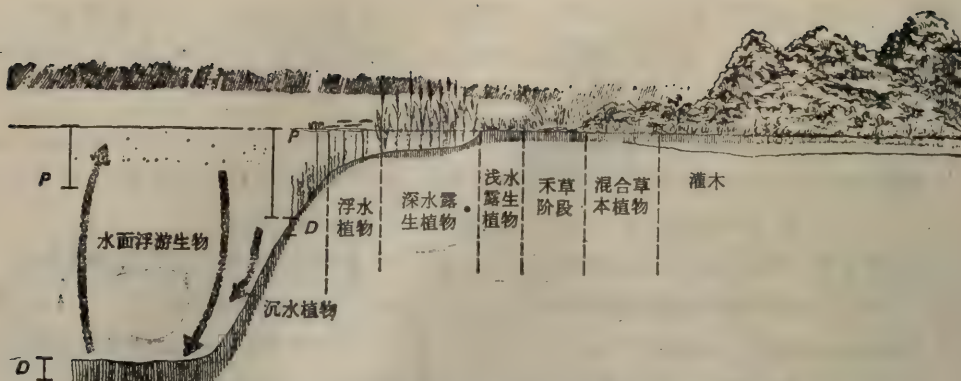 P
P
水面浮游生物
D
D
沉水植物
浮水
植物
深水露
生植物
浅水
露生
植物
禾草
阶段
混合草
本植物
灌木